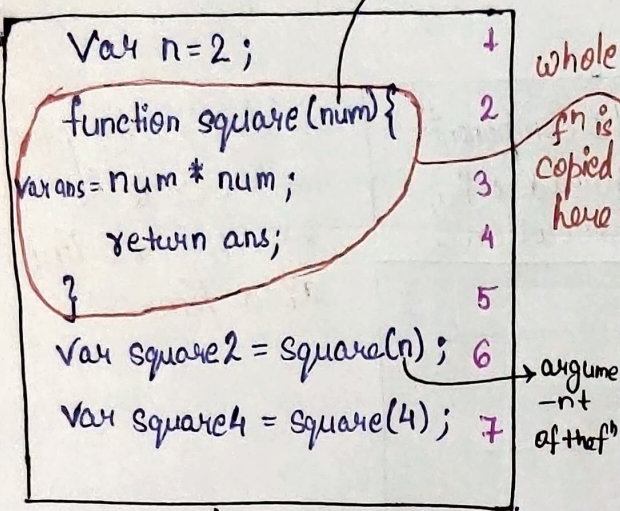 var n = 2 ; 1
function square (num) { 2
var ans = num * num ; 3
return ans; 4
} 5
var square2 = square(n) ; 6
var square4 = square(4) ; 7
whole
fn is
copied
here
argume
-nt
of the fn